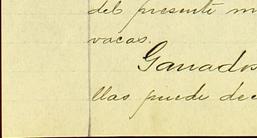 del presente m
vacas.
Ganados
llas puede dec